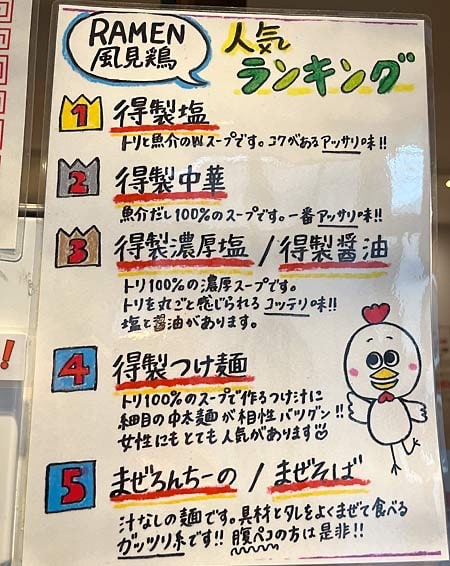 RAMEN
風見鶏
人気
ランキング
1 得製塩
トリと魚介のWスープです。コクがあるアッサリ味!!
2 得製中華
魚介だし100%のスープです。一番アッサリ味!!
3 得製濃厚塩 / 得製醤油
トリ100%の濃厚スープです。
トリを丸ごと感じられるコッテリ味!!
塩と醤油があります。
4 得製つけ麺
トリ100%のスープで作るつけ汁に
細目の中太麺が相性バツグン!!
女性にもとても人気があります
5 まぜろんちーの / まぜそば
汁なしの麺です。具材とタレをよくまぜて食べる
ガッツリ系です!! 腹ペコの方は是非!!
!